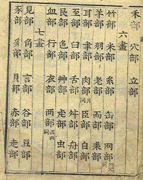 禾部 穴部 立部
六畫
竹部 米部 糸部 缶部 网部
羊部 羽部 老部 而部 耒部
耳部 聿部 肉部 臣部 自部
至部 臼部 舌部 舛部 舟部
艮部 色部 艸部 虍部 虫部
血部 行部 衣部 襾部
七畫
見部 角部 言部 谷部 豆部
豕部 豸部 貝部 赤部 走部